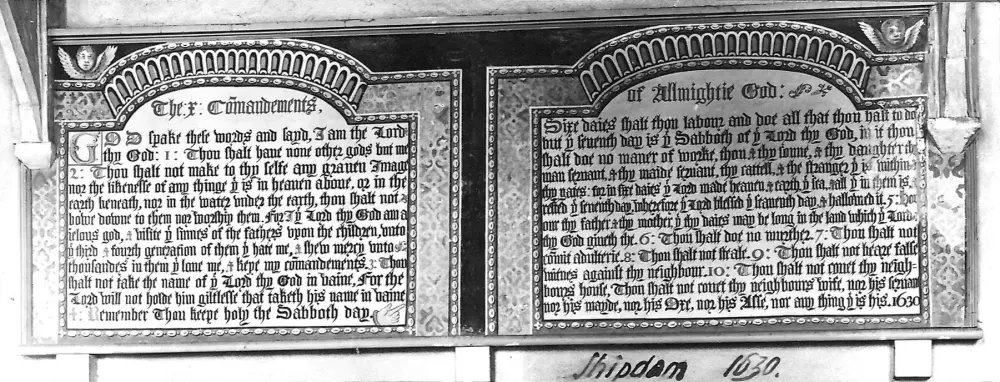 The: x: Cõmandements,
GOD spake these words and sayd, I am the Lord
thy God: 1: Thou shalt have none other gods but me
2: Thou shalt not make to thy selfe any graven Image
nor the likenesse of any thinge yͭ is in heaven above, or in the
earth beneath, nor in the water under the earth, thou shalt not
bowe downe to them nor worship them. For I yͤ Lord thy God am a
ielous god, & visite yͤ sinnes of the fathers vpon the children, vnto
yͤ third & fourth generation of them yͭ hate me, & shew mercy vnto
thousandes in them yͭ love me, & kepe my cõmandements. 3: Thou
shalt not take the name of yͤ Lord thy God in vaine, For the
Lord will not holde him giltlesse that taketh his name in vaine
4: Remember Thou keepe holy the Sabboth day
of Allmightie God:
Sixe daies shalt thou labour and doe all that thou hast to do
but yͤ seventh day is yͤ Sabboth of yͤ Lord thy God, in it thou
shalt doe no maner of worke, thou & thy sonne, & thy daughter thy
man servant, & thy maide servant, thy cattell, & the stranger yͭ is within
thy gates: for in sixe daies yͤ Lord made heaven, & earth yͤ sea, & all yͭ in them is, &
rested yͤ seventh day, wherefore yͤ Lord blessed yͤ seaventh day, & hallowed it. 5: Hon
our thy father & thy mother, yͭ thy daies may be long in the land which yͤ Lord
thy God giveth the. 6: Thou shalt doe no murther. 7: Thou shalt not
cõmit adulterie. 8: Thou shalt not steale. 9: Thou shalt not beare false
witnes against thy neighbour. 10: Thou shalt not covet thy neigh-
bours house, Thou shalt not covet thy neighbours wife, nor his servant
nor his mayde, nor his Oxe, nor his Asse, nor any thing yͭ is his. 1630
Shipdam 1630.